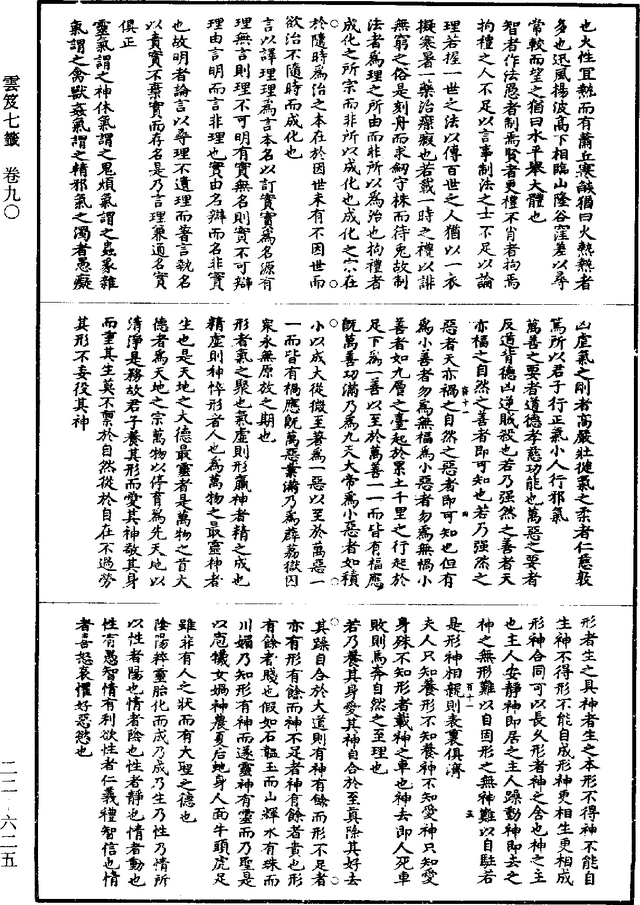 也火性宜熱而有蕭丘寒燄猶曰火熱熱者
多也迅風揚波高下相臨山隆谷窪差以尋
常較而望之猶曰水平舉大體也
智者作法愚者制焉賢者更禮不肖者拘焉
拘禮之人不足以言事制法之士不足以論
理若握一世之法以傳百世之人猶以一衣
擬寒暑一藥治痤瘕也若載一時之禮以誹
無窮之俗是刻舟而求劒守株而待兔故制
法者為理之所由而非所以為治也拘禮者
成化之所宗而非所以成化也成化之宗在
於隨時為治之本在於因世未有不因世而
欲治不隨時而成化也
言以譯理理為言本名以訂實實為名源有
理無言則理不可明有實無名則實不可辯
理由言明而言非理也實由名辯而名非實
也故明者論言以尋理不遺理而著言執名
以責實不棄實而存名是乃言理兼通名實
俱正
靈氣謂之神休氣謂之鬼煩氣謂之蟲豕雜
氣謂之禽獸姦氣謂之精邪氣之濁者愚癡
凶虐氣之剛者高嚴壯健氣之柔者仁慈敦
篤所以君子行正氣小人行邪氣
萬善之要者道德孝慈功能也萬惡之要者
反道背德凶逆賊殺也若乃强然之善者天
亦福之自然之善者即可知也若乃强然之
惡者天亦禍之自然之惡者即可知也但有
為小善者勿為無福為小惡者勿為無禍小
善者如九層之臺起於累土千里之行起於
足下為一善以至於萬善一一而皆有福應
既萬善功滿乃為九天大帝為小惡者如積
小以成大從微至著為一惡以至於萬惡一
一而皆有禍應既萬惡業滿乃為薜荔獄囚
衆永無原放之期也
形者氣之聚也氣虛則形羸神者精之成也
精虛則神悴形者人也為萬物之最靈神者
生也是天地之大德最靈者是萬物之首大
德者為天地之宗萬物以停育為先天地以
清淨是務故君子養其形而愛其神敬其身
而重其生莫不禀於自然從於自在不過勞
其形不妄役其神
形者生之具神者生之本形不得神不能自
生神不得形不能自成形神更相生更相成
形神合同可以長久形者神之舍也神之主
也主人安靜神即居之主人躁動神即去之
神之無形難以自固形之無神難以自駐若
是形神相親則表裏俱濟
夫人只知養形不知養神不知愛神只知愛
身殊不知形者載神之車也神去即人死車
敗則馬奔自然之至理也
若乃養其身愛其神自合於至真除其好去
其躁自合於大道則有神有餘而形不足者
亦有形有餘而神不足者神有餘者貴也形
有餘者賤也假如石韞玉而山輝水有珠而
川媚乃知形有神而遂靈神有靈而乃聖是
以庖犧女媧神農夏后虵身人面牛頭虎足
雖非有人之狀而有大聖之德也
陰陽粹靈胎化而成乃成乃生乃性乃情所
以性者陽也情者陰也性者靜也情者動也
性有愚智情有利欲性者仁義禮智信也情
者喜怒哀懼好惡慾也
百十一
四
百十二
五
雲笈七籤 卷九〇
二二—六二五